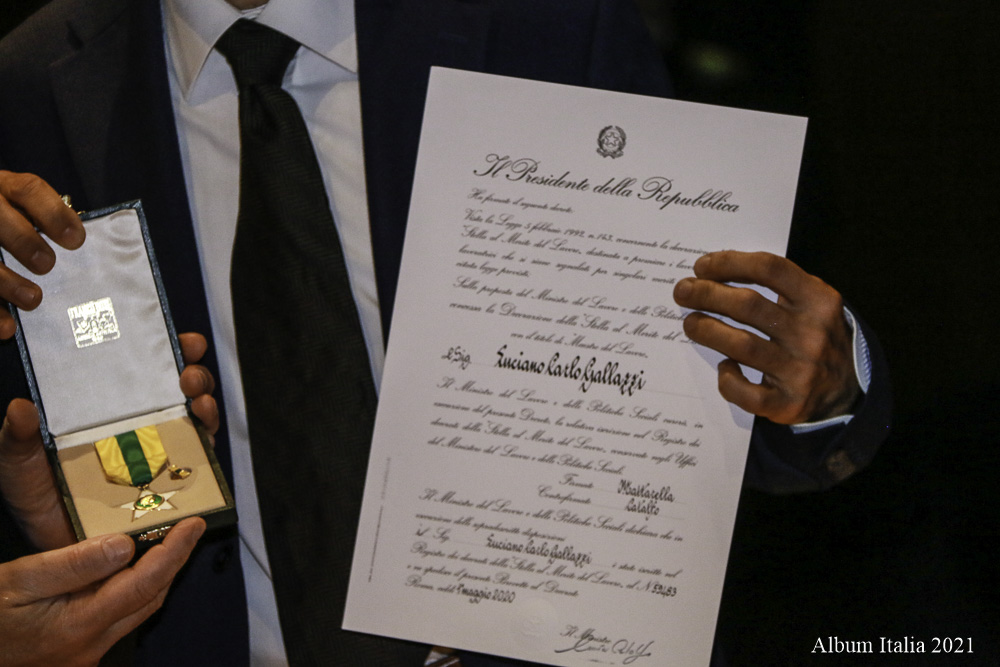 Il Presidente della Repubblica
Ha firmato il seguente decreto:
Vista la Legge 5 febbraio 1992, n. 143, concernente la decorazione
Stella al Merito del Lavoro, destinata a premiare i
lavoratrici che si siano segnalate per singolari meriti
citata legge previsti;
Sulla proposta del Ministro del Lavoro e delle Politiche
concessa la Decorazione della Stella al Merito del
con il titolo di Maestro del Lavoro,
Sig. Luciano Carlo Gallazzi
Il Ministro del Lavoro e delle Politiche Sociali curerà, in
esecuzione del presente Decreto, la relativa iscrizione nel Registro dei
decorati della Stella al Merito del Lavoro, conservato negli Uffici
del Ministero del Lavoro e delle Politiche Sociali.
Firmato Mattarella
Controfirmato Catalfo
Il Ministro del Lavoro e delle Politiche Sociali dichiara che in
esecuzione delle sopraindicate disposizioni
il Sig. Luciano Carlo Gallazzi è stato iscritto nel
Registro dei decorati della Stella al Merito del Lavoro, al N. 59483
e ne spedisce il presente Brevetto al Decorato
Roma, addì 1 maggio 2020
Il Ministro
Album Italia 2021